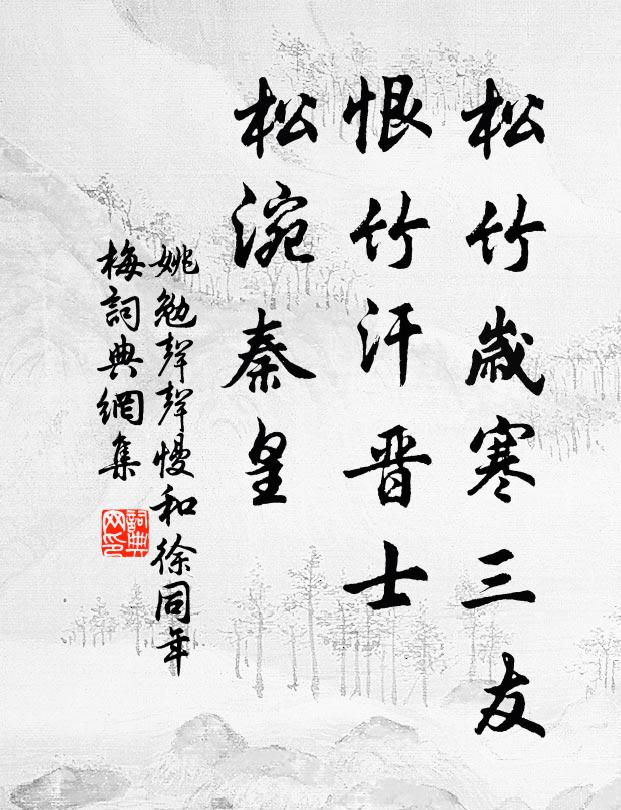 松竹歲寒三友
恨竹汗晋士
松涴秦皇
姚勉聲聲慢和徐同年
梅詞典網集
詞典
网印